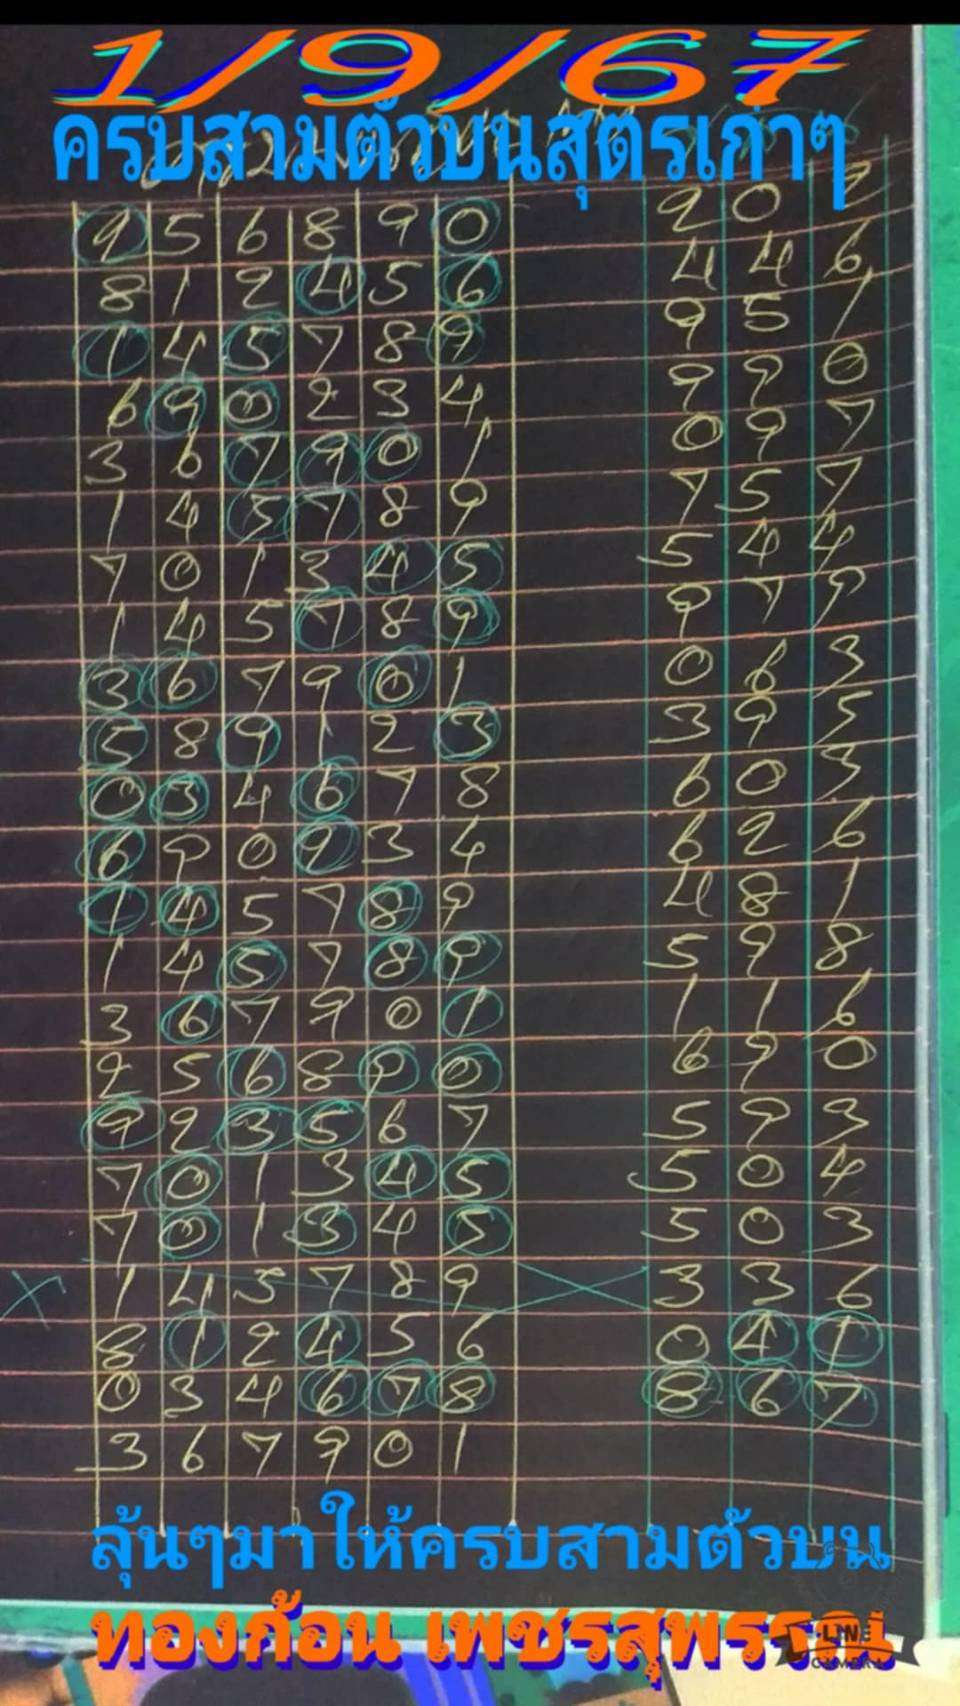 1/9/67
ครบสามตัวบนสุตรเก่าๆ
9 5 6 8 9 0 9 0 9
8 1 2 4 5 6 4 4 6
1 4 5 7 8 9 9 5 1
6 9 0 2 3 4 9 9 0
3 6 7 9 0 1 0 9 7
1 4 5 7 8 9 7 5 7
7 0 1 3 4 5 5 4 4
1 4 5 7 8 9 9 7 9
3 6 7 9 0 1 0 6 3
5 8 9 1 2 3 3 9 5
0 3 4 6 7 8 6 0 3
6 9 0 9 3 4 6 2 6
1 4 5 7 8 9 4 8 1
1 4 5 7 8 9 5 9 8
3 6 7 9 0 1 1 1 6
2 5 6 8 9 0 6 9 0
9 2 3 5 6 7 5 9 3
7 0 1 3 4 5 5 0 4
7 0 1 3 4 5 5 0 3
X 1 4 5 7 8 9 3 3 6
8 1 2 4 5 6 0 4 1
0 3 4 6 7 8 8 6 7
3 6 7 9 0 1
ลุ้นๆมาให้ครบสามตัวบน
ทองก้อน เพชรสุพรรณ
LINE
CAMERA